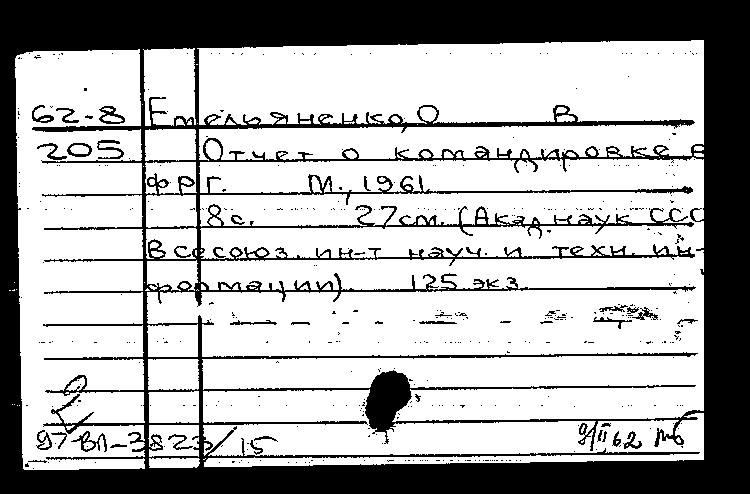 62-8 Емельяненко, О В
205 Отчет о командировке в
ФРГ. М., 1961.
8с. 27см. (Акад. наук ССС
Всесоюз. ин-т науч. и техн. ин-
формации). 125 экз.
2
97 ВЛ-3823/15 9/II 62